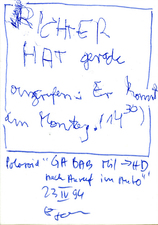 RICHTER
HAT gerade
angerufen: Er kommt
am Montag. (14³⁰)
Polaroid "GA BAB Mil → HD
nach Anruf im Auto"
23 IV 94